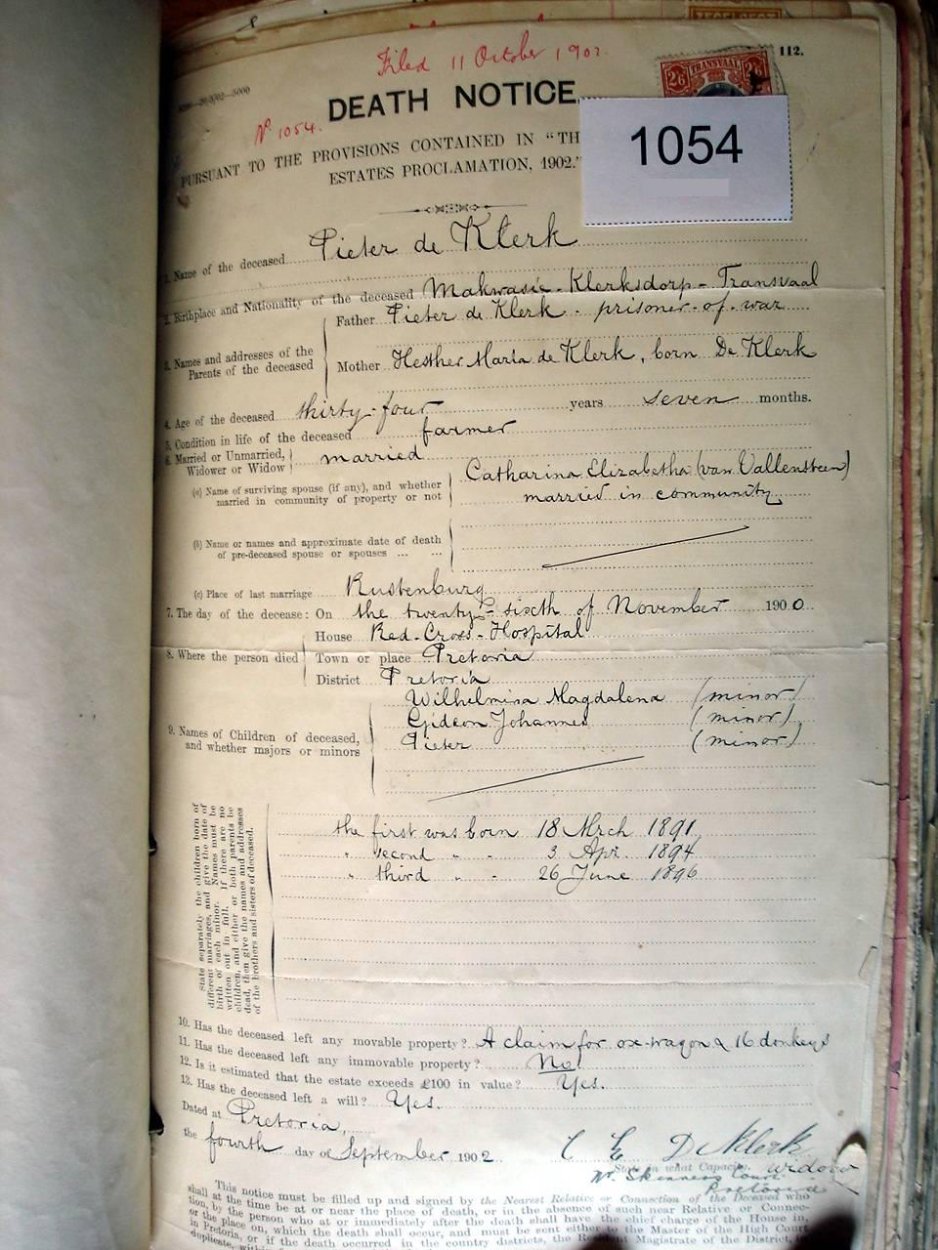 Filed 11 October 1902
112.
2/6 TRANSVAAL 2/6
DEATH NOTICE
No 1054.
1054
PURSUANT TO THE PROVISIONS CONTAINED IN "TH
ESTATES PROCLAMATION, 1902."
1. Name of the deceased Pieter de Klerk
2. Birthplace and Nationality of the deceased Makwasie - Klerksdorp - Transvaal
3. Names and addresses of the Parents of the deceased
Father Pieter de Klerk - prisoner-of-war
Mother Hesther Maria de Klerk, born De Klerk
4. Age of the deceased thirty-four years seven months.
5. Condition in life of the deceased farmer
6. Married or Unmarried, Widower or Widow married
(a) Name of surviving spouse (if any), and whether married in community of property or not
Catharina Elizabetha (van Vallensteen)
married in community
(b) Name or names and approximate date of death
of pre-deceased spouse or spouses ... ...
(c) Place of last marriage Rustenburg
7. The day of the decease: On the twenty-sixth of November 1900.
8. Where the person died
House Red-Cross-Hospital
Town or place Pretoria
District Pretoria
9. Names of Children of deceased,
and whether majors or minors
Wilhelmina Magdalena (minor)
Gideon Johannes (minor)
Pieter (minor)
State separately the children born of
different marriages, and give the date of
birth of each minor. Names must be
written out in full. If there are no
children, and either or both parents be
dead, then give the names and addresses
of the brothers and sisters of deceased.
the first was born 18 Mrch 1891
" second " - 3 Apr. 1894
" third " - 26 June 1896
10. Has the deceased left any movable property? A claim for ox-wagon & 16 donkeys
11. Has the deceased left any immovable property? No!
12. Is it estimated that the estate exceeds £100 in value? Yes.
13. Has the deceased left a will? Yes.
Dated at Pretoria,
the fourth day of September 1902
C E De Klerk
State in what Capacity widow
Skinners Court
Pretoria
This notice must be filled up and signed by the Nearest Relative or Connection of the Deceased who
shall at the time be at or near the place of death, or in the absence of such near Relative or Connec-
tion, by the person who at or immediately after the death shall have the chief charge of the House in,
or the place on, which the death shall occur, and must be sent either to the Master of the High Court
in Pretoria, or if the death occurred in the country districts, the Resident Magistrate of the District, in
duplicate,